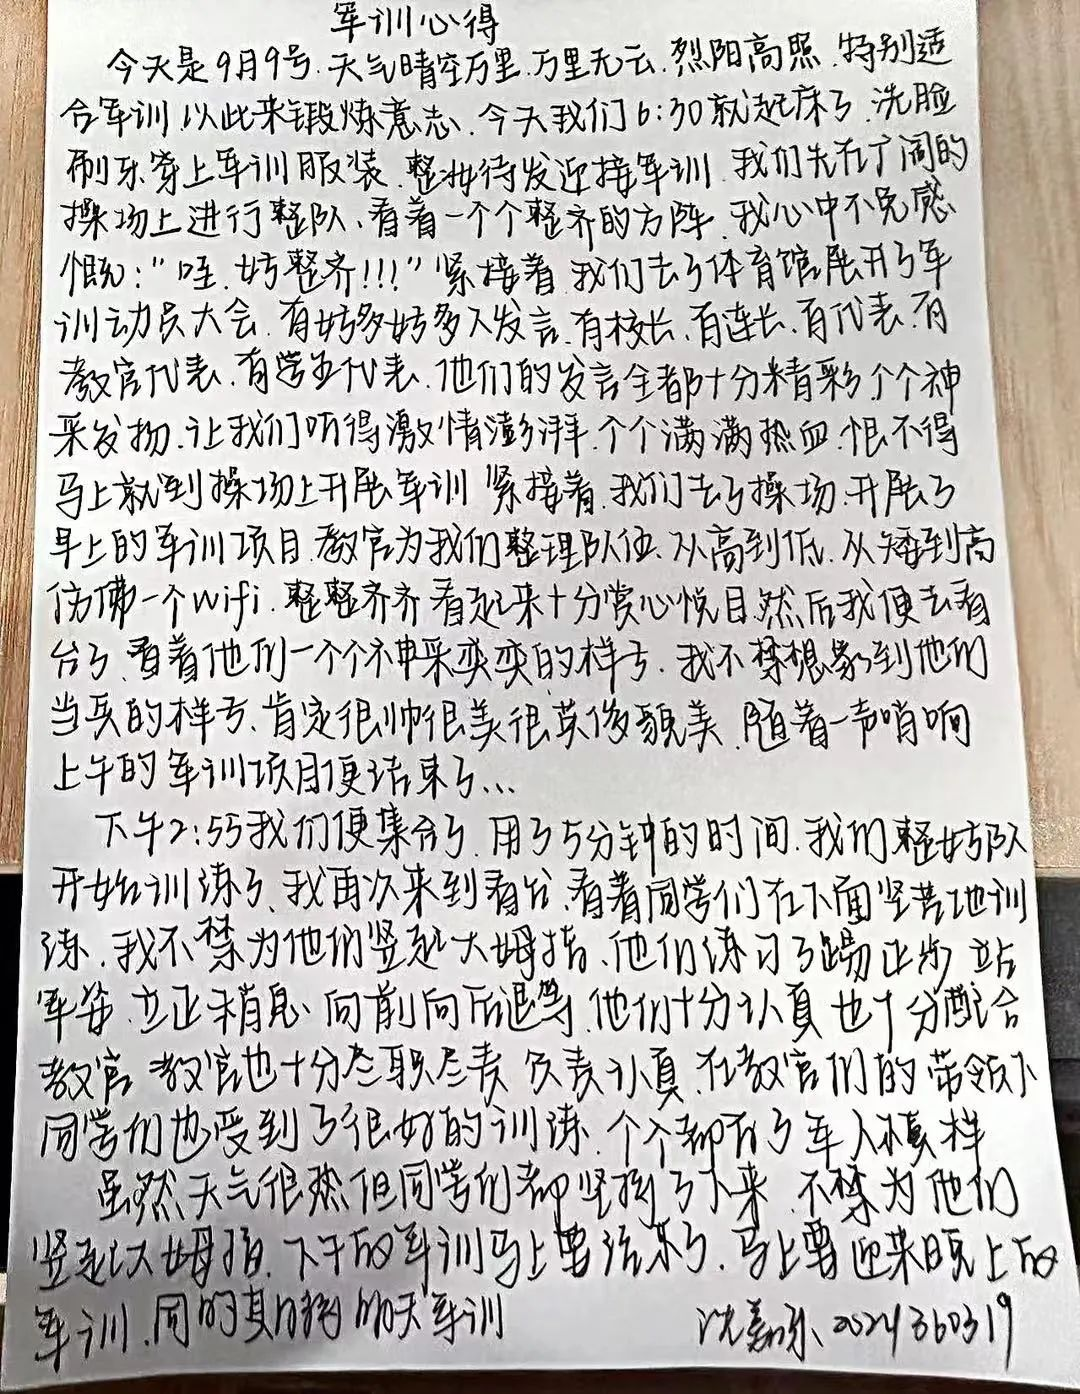 军训心得
今天是9月9号.天气晴空万里.万里无云.烈阳高照.特别适
合军训.以此来锻炼意志、今天我们6:30就起床了.洗脸
刷牙穿上军训服装.整妆待发迎接军训.我们先在广阔的
操场上进行整队、看着一个个整齐的方阵.我心中不免感
慨:"哇.好整齐!!!"紧接着.我们去了体育馆展开了军
训动员大会.有好多好多人发言.有校长.有连长.有代表.有
教官代表.有学生代表.他们的发言全都十分精彩.个个神
采发扬.让我们听得激情澎湃.个个满满热血.恨不得
马上就到操场上开展军训 紧接着.我们去了操场.开展了
早上的军训项目.教官为我们整理队伍.从高到低.从矮到高
仿佛一个wifi.整整齐齐看起来十分赏心悦目.然后我便去看
台了、看着他们一个个神采奕奕的样子.我不禁想象到他们
当兵的样子、肯定很帅很美很英俊貌美.随着一声哨响
上午的军训项目便结束了...
下午2:55我们便集合了.用了5分钟的时间.我们整好队
开始训练了、我再次来到看台、看着同学们在下面坚苦地训
练.我不禁为他们竖起大姆指、他们练习了踢正步.站
军姿.立正稍息.向前向后退等.他们十分认真也十分配合
教官 教官也十分尽职尽责 负责认真.在教官们的带领下
同学们也受到了很好的训练.个个都有了军人模样
虽然天气很热但同学们都坚持了下来.不禁为他们
竖起大姆指.下午的军训马上要结束了.马上要迎来晚上的
军训.同时其明天军训 2024360319